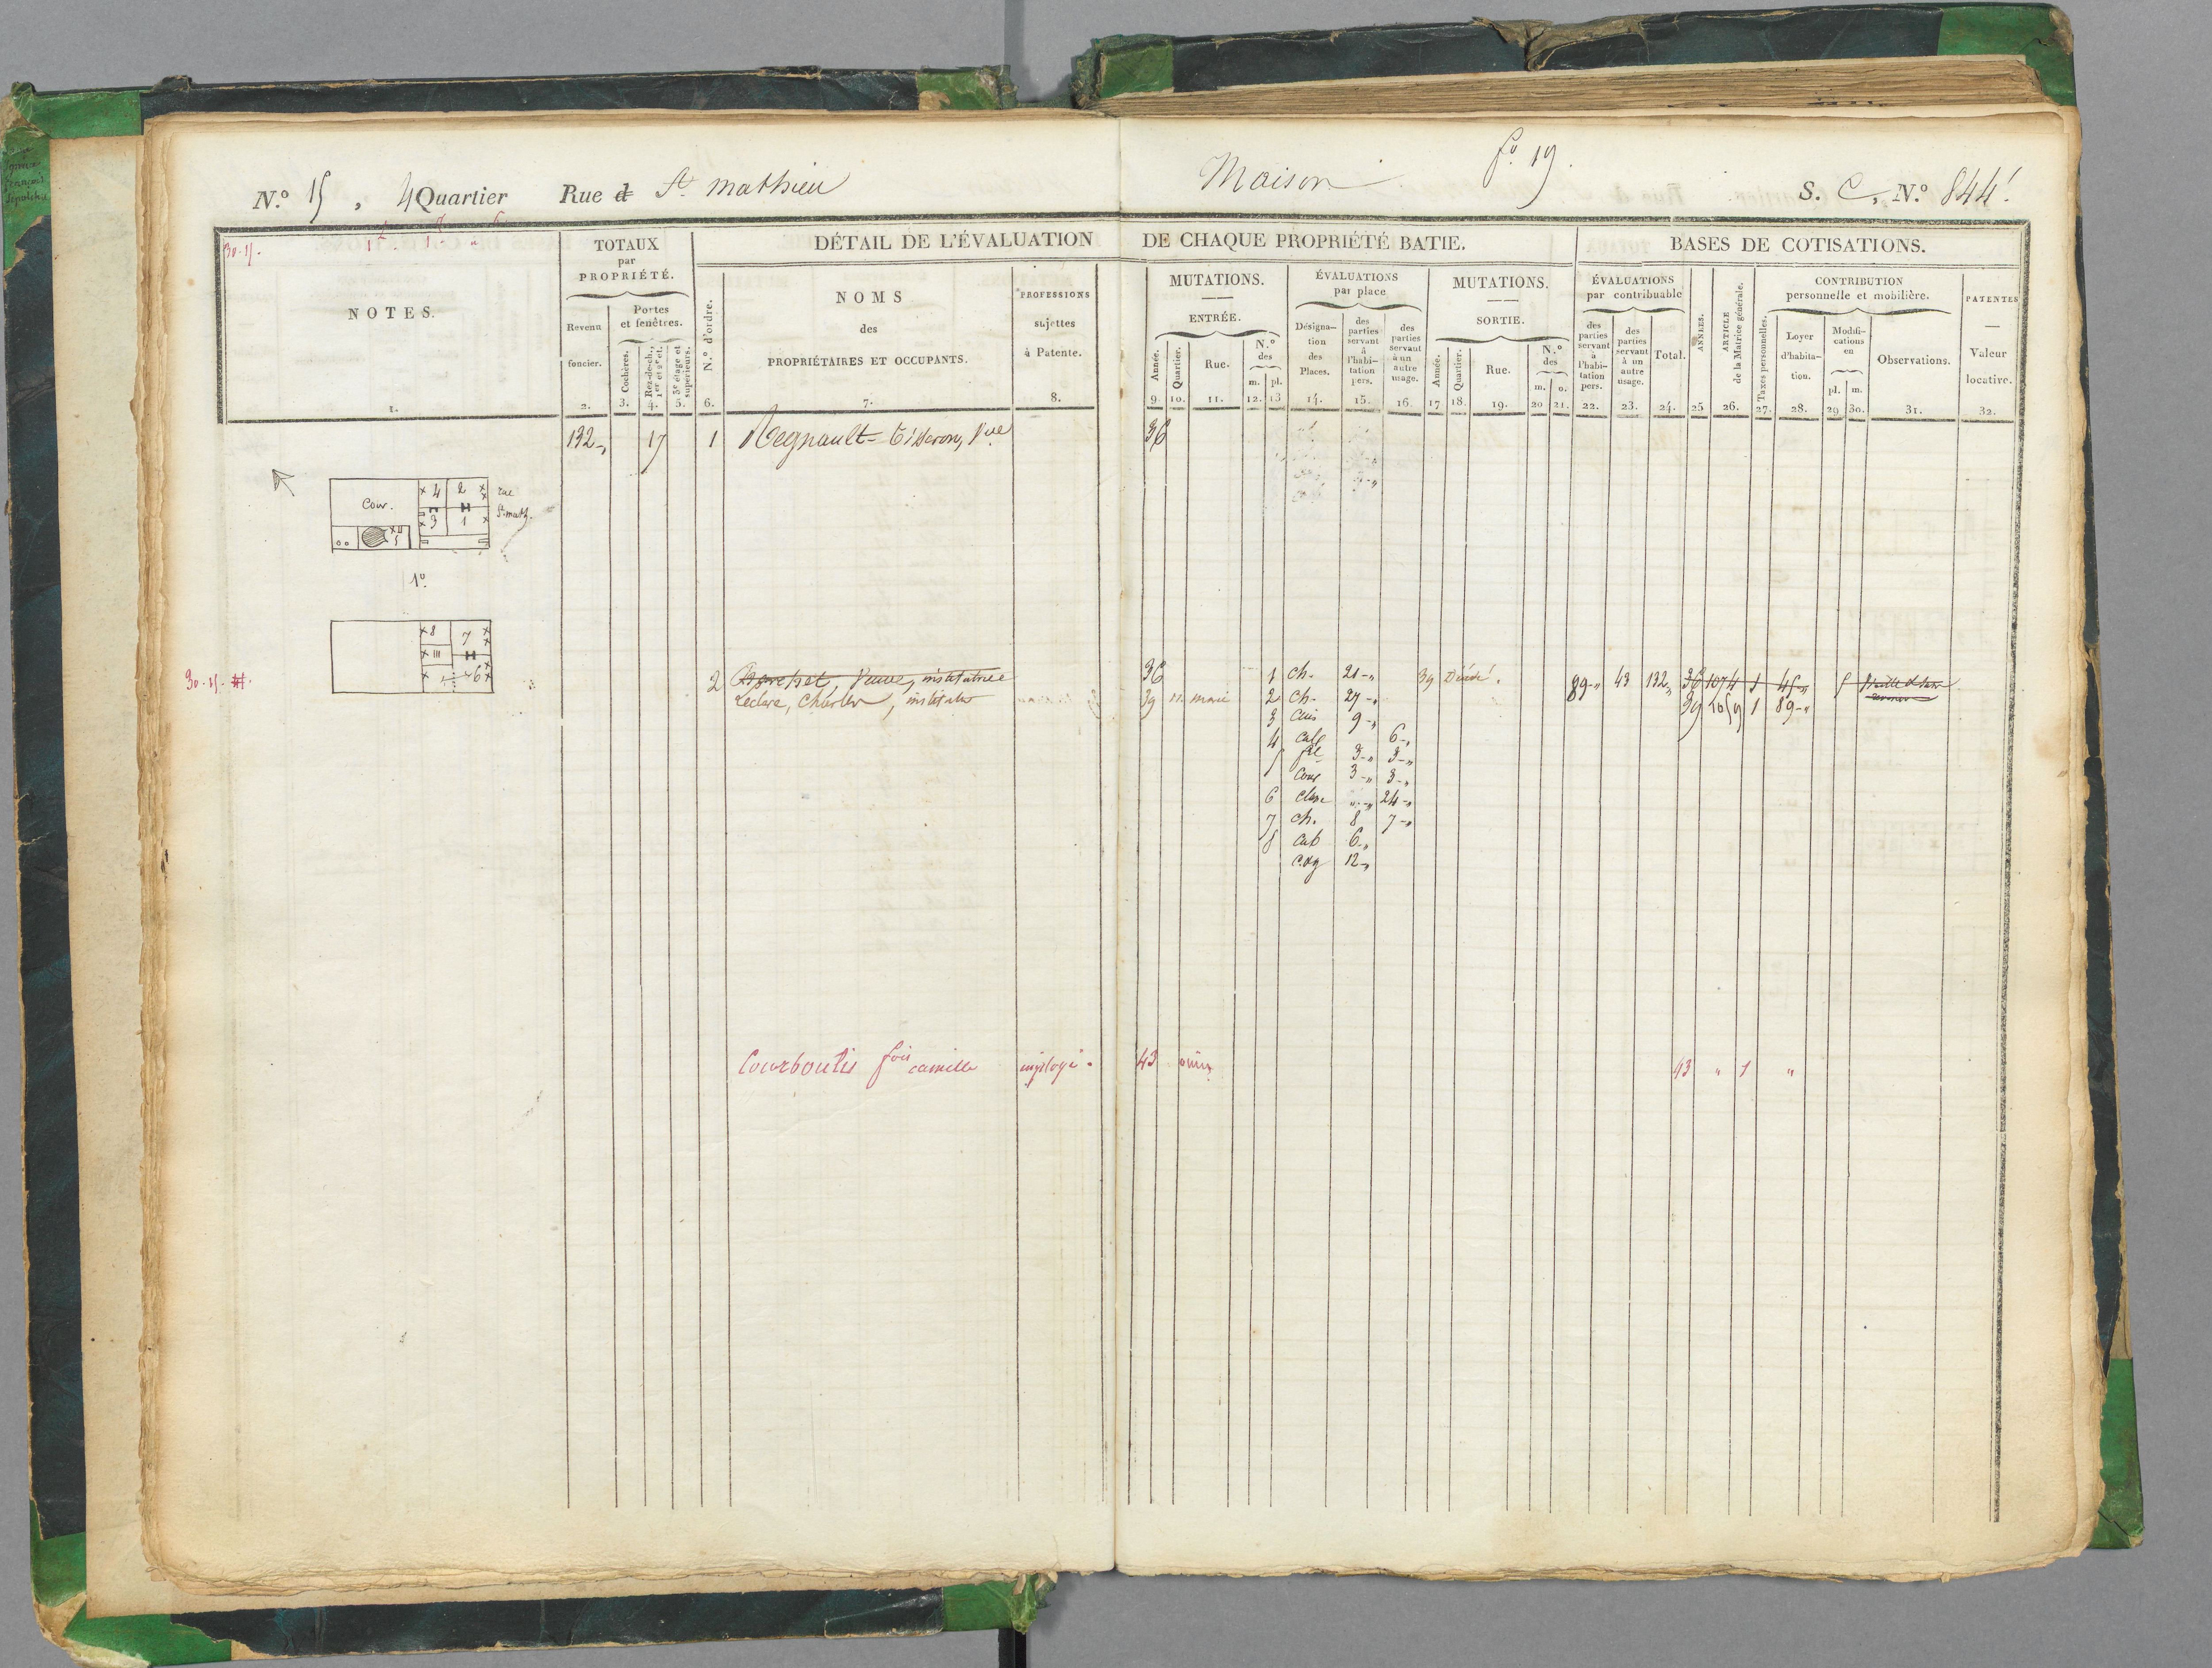 N.º 15, 4 Quartier Rue de St mathieu
Maison f.º 19.
S. C, N.º 844.
30-15.
NOTES.
1.
TOTAUX
par
PROPRIÉTÉ.
Revenu
foncier.
2.
Portes
et fenêtres.
Cochères.
3.
Rez-de-ch.,
1er et 2e et.
4.
3e étage et
supérieurs.
5.
DÉTAIL DE L'ÉVALUATION DE CHAQUE PROPRIÉTÉ BATIE.
N.º d'ordre.
6.
NOMS
des
PROPRIÉTAIRES ET OCCUPANTS.
7.
PROFESSIONS
sujettes
à Patente.
8.
MUTATIONS.
ENTRÉE.
Année.
9.
Quartier.
10.
Rue.
11.
N.º
des
m. pl.
12. 13
ÉVALUATIONS
par place
Désigna-
tion
des
Places.
14.
des
parties
servant
à
l'habi-
tation
pers.
15.
des
parties
servant
à un
autre
usage.
16.
MUTATIONS.
SORTIE.
Année.
17
Quartier.
18.
Rue.
19.
N.º
des
m. o.
20 21.
BASES DE COTISATIONS.
ÉVALUATIONS
par contribuable
des
parties
servant
à
l'habi-
tation
pers.
22.
des
parties
servant
à un
autre
usage.
23.
Total.
24.
ANNÉES.
25
ARTICLE
de la Matrice générale.
26.
CONTRIBUTION
personnelle et mobilière.
Taxes personnelles.
27.
Loyer
d'habita-
tion.
28.
Modifi-
cations
en
pl. m.
29 30.
Observations.
31.
PATENTES
Valeur
locative.
32.
132-„ 17 1 Regnault- Vve 36
Cour. 4 2 rue
3 1 St. math.
5
1º.
8 7
6
30-15-
2 veuve, institutrice 36 1 ch. 21-„ 39 Décédé. 89-„ 43 132„ 36 1074 1 45-„
Leclere, Charles, institutr 39 n. marié 2 ch. 27-„ 39 1 89-„
3 cuis 9-„
4 6-„
5 3-„ 3-„
Cour 3-„ 3-„
6 classe „-„ 24-„
7 ch. 8 7-„
8 cab 6-„
12-„
Courboulis fois camille employé. 43 omis 43 „ 1 „